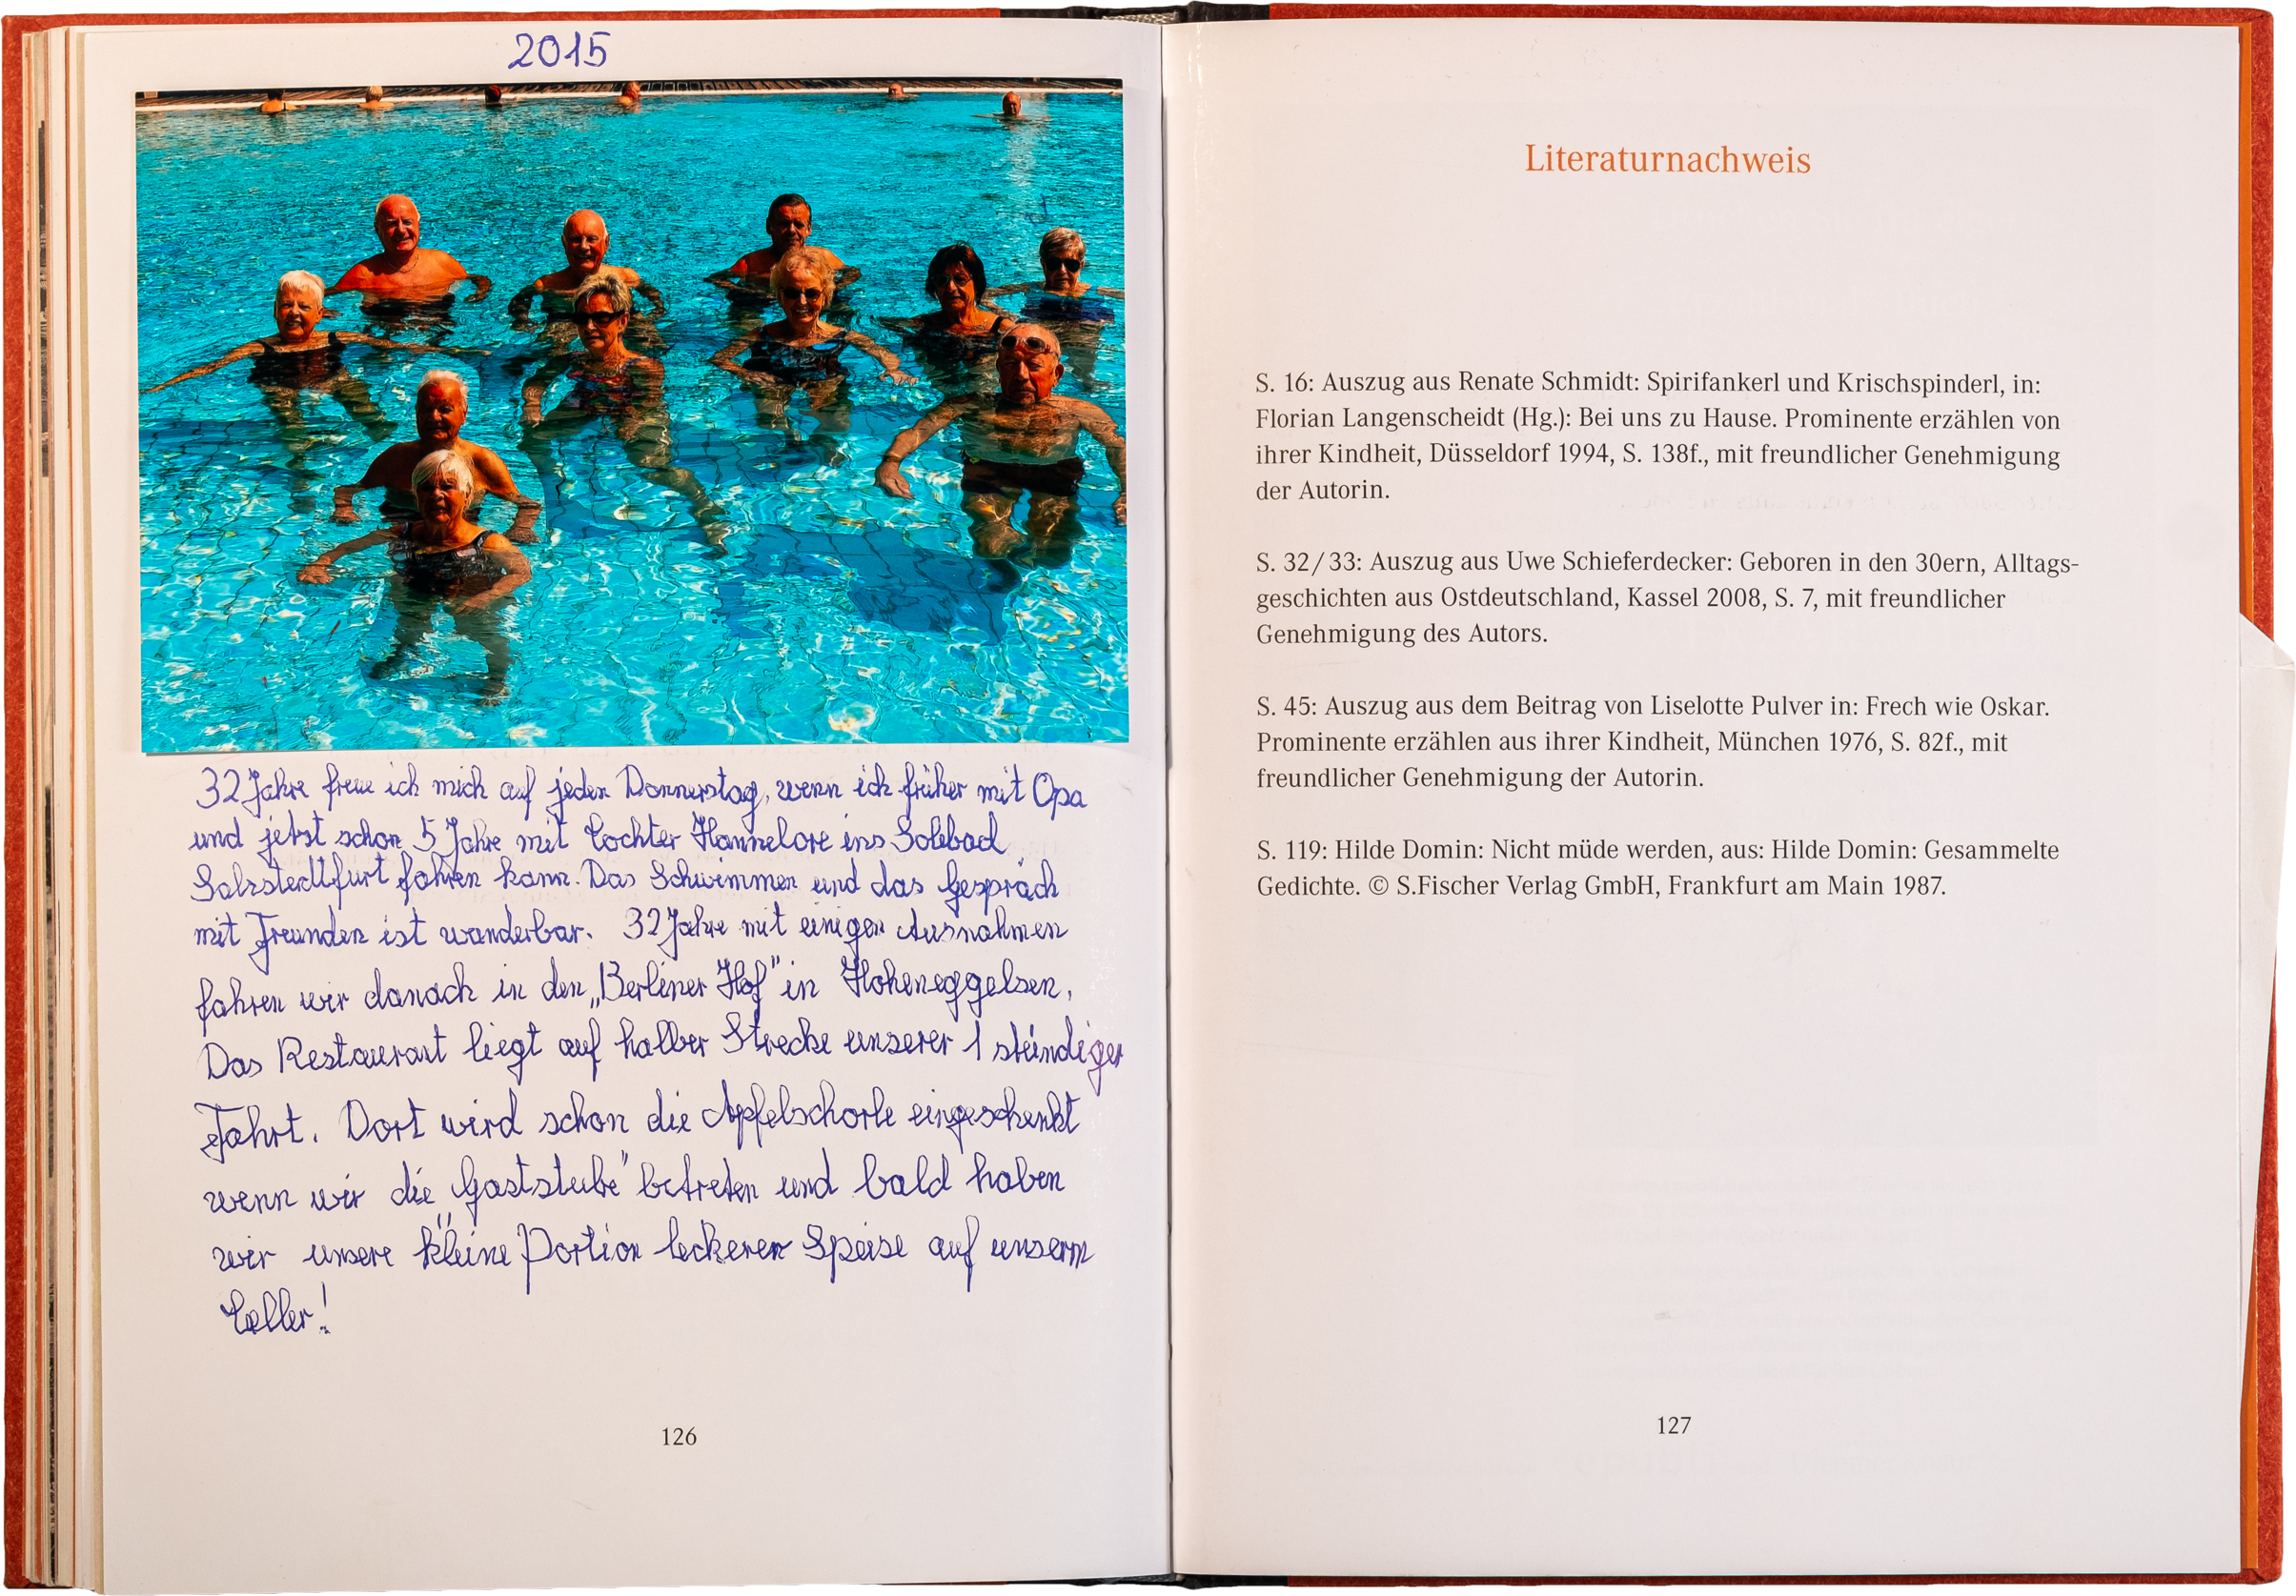 2015
32 Jahre freue ich mich auf jeden Donnerstag, wenn ich früher mit Opa
und jetzt schon 5 Jahre mit Tochter Hannelore ins Solebad
Salzstedtfurt fahren kann. Das Schwimmen und das Gespräch
mit Freunden ist wunderbar. 32 Jahre mit einigen Ausnahmen
fahren wir danach in den „Berliner Hof" in Hoheneggelsen.
Das Restaurant liegt auf halber Strecke unserer 1 stündigen
Fahrt. Dort wird schon die Apfelschorle eingeschenkt
wenn wir die „Gaststube" betreten und bald haben
wir unsere kleine Portion leckeren Speise auf unserm
Teller!
126
Literaturnachweis
S. 16: Auszug aus Renate Schmidt: Spirifankerl und Krischspinderl, in:
Florian Langenscheidt (Hg.): Bei uns zu Hause. Prominente erzählen von
ihrer Kindheit, Düsseldorf 1994, S. 138f., mit freundlicher Genehmigung
der Autorin.
S. 32/33: Auszug aus Uwe Schieferdecker: Geboren in den 30ern, Alltags-
geschichten aus Ostdeutschland, Kassel 2008, S. 7, mit freundlicher
Genehmigung des Autors.
S. 45: Auszug aus dem Beitrag von Liselotte Pulver in: Frech wie Oskar.
Prominente erzählen aus ihrer Kindheit, München 1976, S. 82f., mit
freundlicher Genehmigung der Autorin.
S. 119: Hilde Domin: Nicht müde werden, aus: Hilde Domin: Gesammelte
Gedichte. © S.Fischer Verlag GmbH, Frankfurt am Main 1987.
127